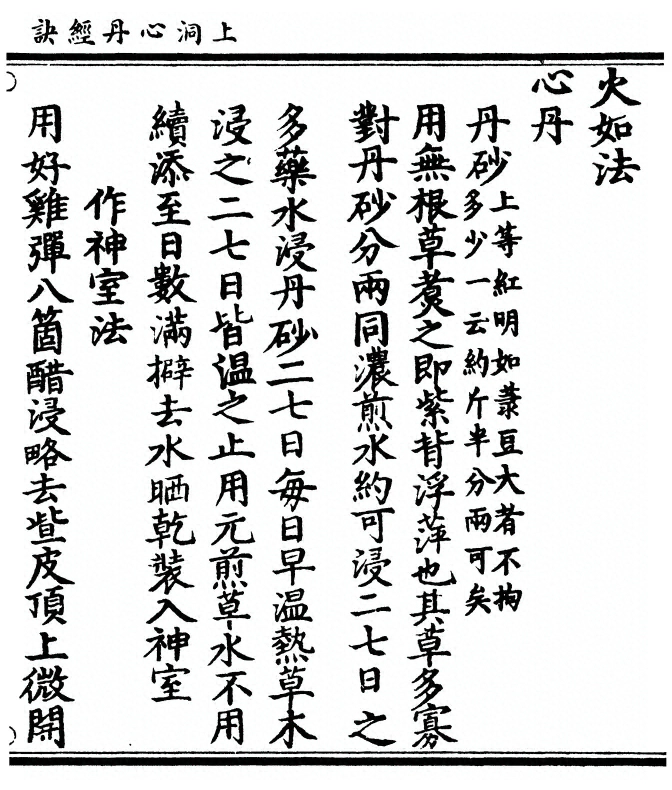 上洞心丹經訣
火如法
心丹
丹砂上等紅明如菉豆大者不拘
多少一云約斤半分兩可矣
用無根草煑之即紫背浮萍也其草多寡
對丹砂分兩同濃煎水約可浸二七日之
多藥水浸丹砂二七日每日早温熱草木
浸之二七日皆温之止用元煎草水不用
續添至日數滿擗去水晒乾裝入神室
作神室法
用好雞彈八箇醋浸略去些皮頂上微開